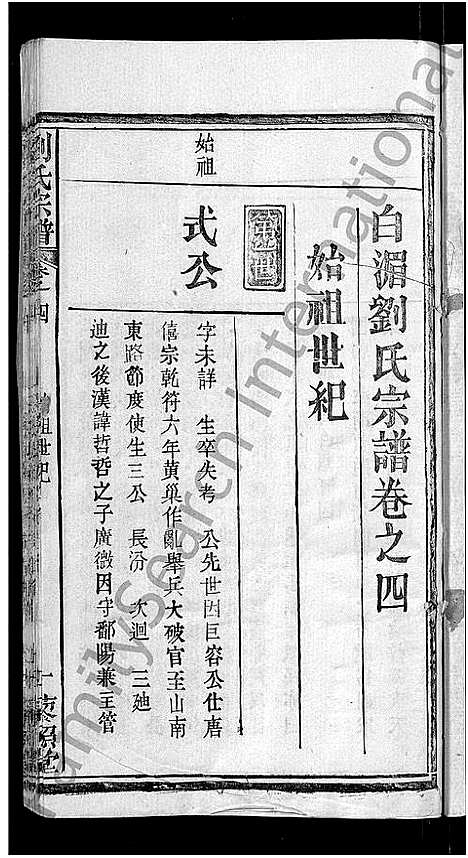 白湄劉氏宗譜卷之四
始祖世紀
始祖
第一世
式公
字未詳 生卒失考 公先世因巨容公仕唐
僖宗乾符六年黄巢作亂舉兵大破官至山南
東路節度使生三公 長汾 次迴 三廸
廸之後漢諱哲哲之子廣微因守鄱陽兼主管
劉氏宗譜
卷之四
始祖世紀
一
藜照堂
FamilySearch International